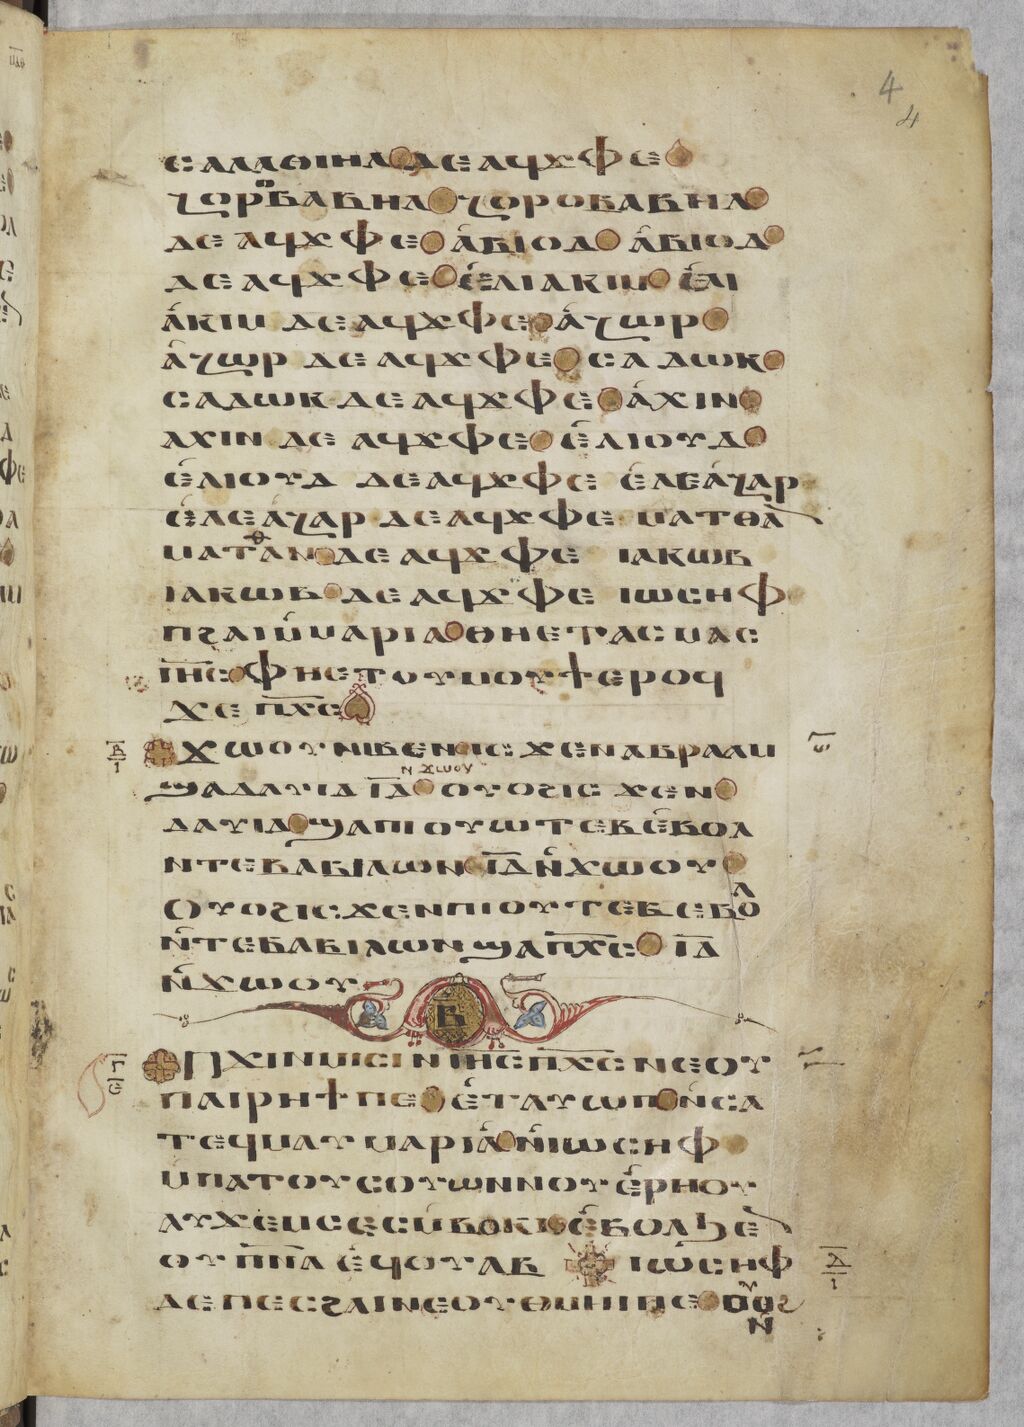 4
4
ⲥⲁⲗⲁⲑⲓⲏⲗ ⲇⲉ ⲁϥϫⲫⲉ
ⲍⲟⲣⲟⲃⲁⲃⲏⲗ ⲍⲟⲣⲟⲃⲁⲃⲏⲗ
ⲇⲉ ⲁϥϫⲫⲉ ⲁ̀ⲃⲓⲟⲩⲇ ⲁ̀ⲃⲓⲟⲩⲇ
ⲇⲉ ⲁϥϫⲫⲉ ⲉ̀ⲗⲓⲁⲕⲓⲙ ⲉ̀ⲗⲓ
ⲁ̀ⲕⲓⲙ ⲇⲉ ⲁϥϫⲫⲉ ⲁ̀ⲍⲱⲣ
ⲁ̀ⲍⲱⲣ ⲇⲉ ⲁϥϫⲫⲉ ⲥⲁⲇⲱⲕ
ⲥⲁⲇⲱⲕ ⲇⲉ ⲁϥϫⲫⲉ ⲁ̀ⲭⲓⲛ
ⲁⲭⲓⲛ ⲇⲉ ⲁϥϫⲫⲉ ⲉ̀ⲗⲓⲟⲩⲇ
ⲉ̀ⲗⲓⲟⲩⲇ ⲇⲉ ⲁϥϫⲫⲉ ⲉ̀ⲗⲉⲁ̀ⲍⲁⲣ
ⲉ̀ⲗⲉⲁ̀ⲍⲁⲣ ⲇⲉ ⲁϥϫⲫⲉ ⲙⲁⲧⲑⲁⲛ
ⲙⲁⲧⲑⲁⲛ ⲇⲉ ⲁϥϫⲫⲉ ⲓⲁⲕⲱⲃ
ⲓⲁⲕⲱⲃ ⲇⲉ ⲁϥϫⲫⲉ ⲓⲱⲥⲏⲫ
ⲡϩⲁⲓ ⲙ̀ⲙⲁⲣⲓⲁ ⲑⲏⲉⲧⲁⲥⲙⲁⲥ
ⲓ̅ⲏ̅ⲥ̅ ⲫⲏⲉⲧⲟⲩⲙⲟⲩϯ ⲉⲣⲟϥ
ϫⲉ ⲡ̅ⲭ̅ⲥ̅
ϫⲱⲟⲩ ⲛⲓⲃⲉⲛ ⲓⲥϫⲉⲛ ⲁⲃⲣⲁⲁⲙ
ϣⲁ ⲇⲁⲩⲓⲇ ⲓ̅ⲇ̅ ⲛϫⲱⲟⲩ ⲟⲩⲟϩ ⲓⲥϫⲉⲛ
ⲇⲁⲩⲓⲇ ϣⲁ ⲡⲓⲟⲩⲱⲧⲉⲃ ⲉ̀ⲃⲟⲗ
ⲛⲧⲉ ⲃⲁⲃⲓⲗⲱⲛ ⲓ̅ⲇ̅ ⲛ̀ϫⲱⲟⲩ
ⲟⲩⲟϩ ⲓⲥϫⲉⲛ ⲡⲓⲟⲩⲧⲉⲃ ⲉⲃⲟⲗ
ⲛ̀ⲧⲉ ⲃⲁⲃⲓⲗⲱⲛ ϣⲁ ⲡ̅ⲭ̅ⲥ̅ ⲓ̅ⲇ̅
ⲛ̀ϫⲱⲟⲩ
ⲃ
ⲡϫⲓⲛⲙⲓⲥⲓ ⲛⲓ̅ⲏ̅ⲥ̅ ⲡ̅ⲭ̅ⲥ̅ ⲛⲉ ⲟⲩ
ⲡⲁⲓⲣⲏϯ ⲡⲉ ⲉ̀ⲧⲁⲩⲱⲡ ⲛ̀ⲥⲁ
ⲧⲉϥⲙⲁⲩ ⲙⲁⲣⲓⲁ̀ ⲛ̀ⲓⲱⲥⲏⲫ
ⲙ̀ⲡⲁⲧⲟⲩⲥⲟⲩⲱⲛ ⲛⲟⲩⲉ̀ⲣⲏⲟⲩ
ⲁⲩϫⲉⲙⲥ ⲉⲥⲙ̀ⲃⲟⲕⲓ ⲉ̀ⲃⲟⲗ ϧⲉⲛ
ⲟⲩⲡ̅ⲛ̅ⲁ̅ ⲉ̀ϥⲟⲩⲁⲃ ⲓⲱⲥⲏⲫ
ⲇⲉ ⲡⲉⲥϩⲁⲓ ⲛⲉ ⲟⲩⲑⲙⲏⲓ ⲡⲉ ⲟⲩⲟϩ